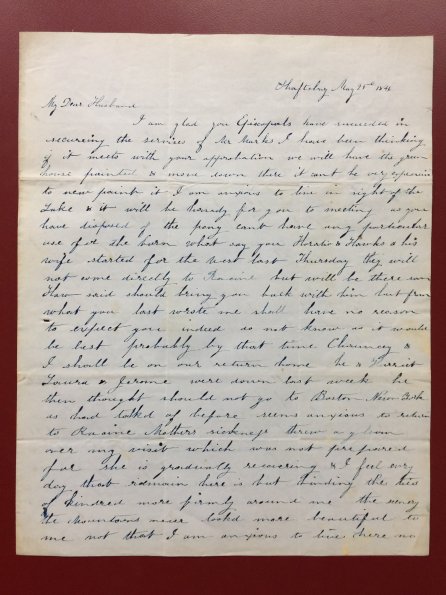 Shaftsbury May 25th 1846
My Dear Husband
I am glad you Episcopals have succeeded in
securing the services of Mr Marks I have been thinking
if it meets with your approbation we will have the green
house painted & move down there it cant be very expensive
to new paint it I am anxious to live in sight of the
Lake & it will be handy for you to meeting as you
have disposed of the pony cant have any particular
use of the barn what say you Horatio & Hawks & his
wife started for the West last Thursday they will
not come directly to Racine but will be there soon
said should bring you back with him but from
what you last wrote me shall have no reason
to expect you indeed do not know as it would
be best probably by that time Chauncey &
I shall be on our return home he & Harriet
Laura & Jerome were down last week he
then thought should not go to Boston New York
as had talkd of before seems anxious to return
to Racine Mothers sickness threw a gloom
over my visit which was not prepared
for she is gradually recovering & I feel every
day that I remain here is but binding the ties
of kindred more firmly around me the scenery
the Mountains never lookd more beautiful to
me not that I am anxious to live here no